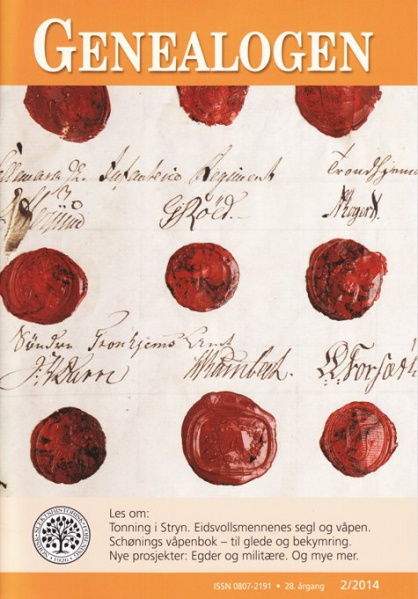 GENEALOGEN
Infanterie Regiment Trondhjem
GRöed.
Søndre Tronhjems
Les om:
Tonning i Stryn. Eidsvollsmennenes segl og våpen.
Schønings våpenbok – til glede og bekymring.
Nye prosjekter: Egder og militære. Og mye mer.
ISSN 0807-2191 • 28. årgang 2/2014